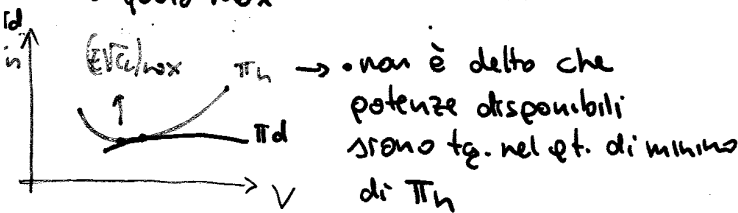 quota max
Πd
Πn
(E√CL)max Πn → • non è detto che
potenze disponibili
Πd siano tg. nel pt. di minimo
V di Πn